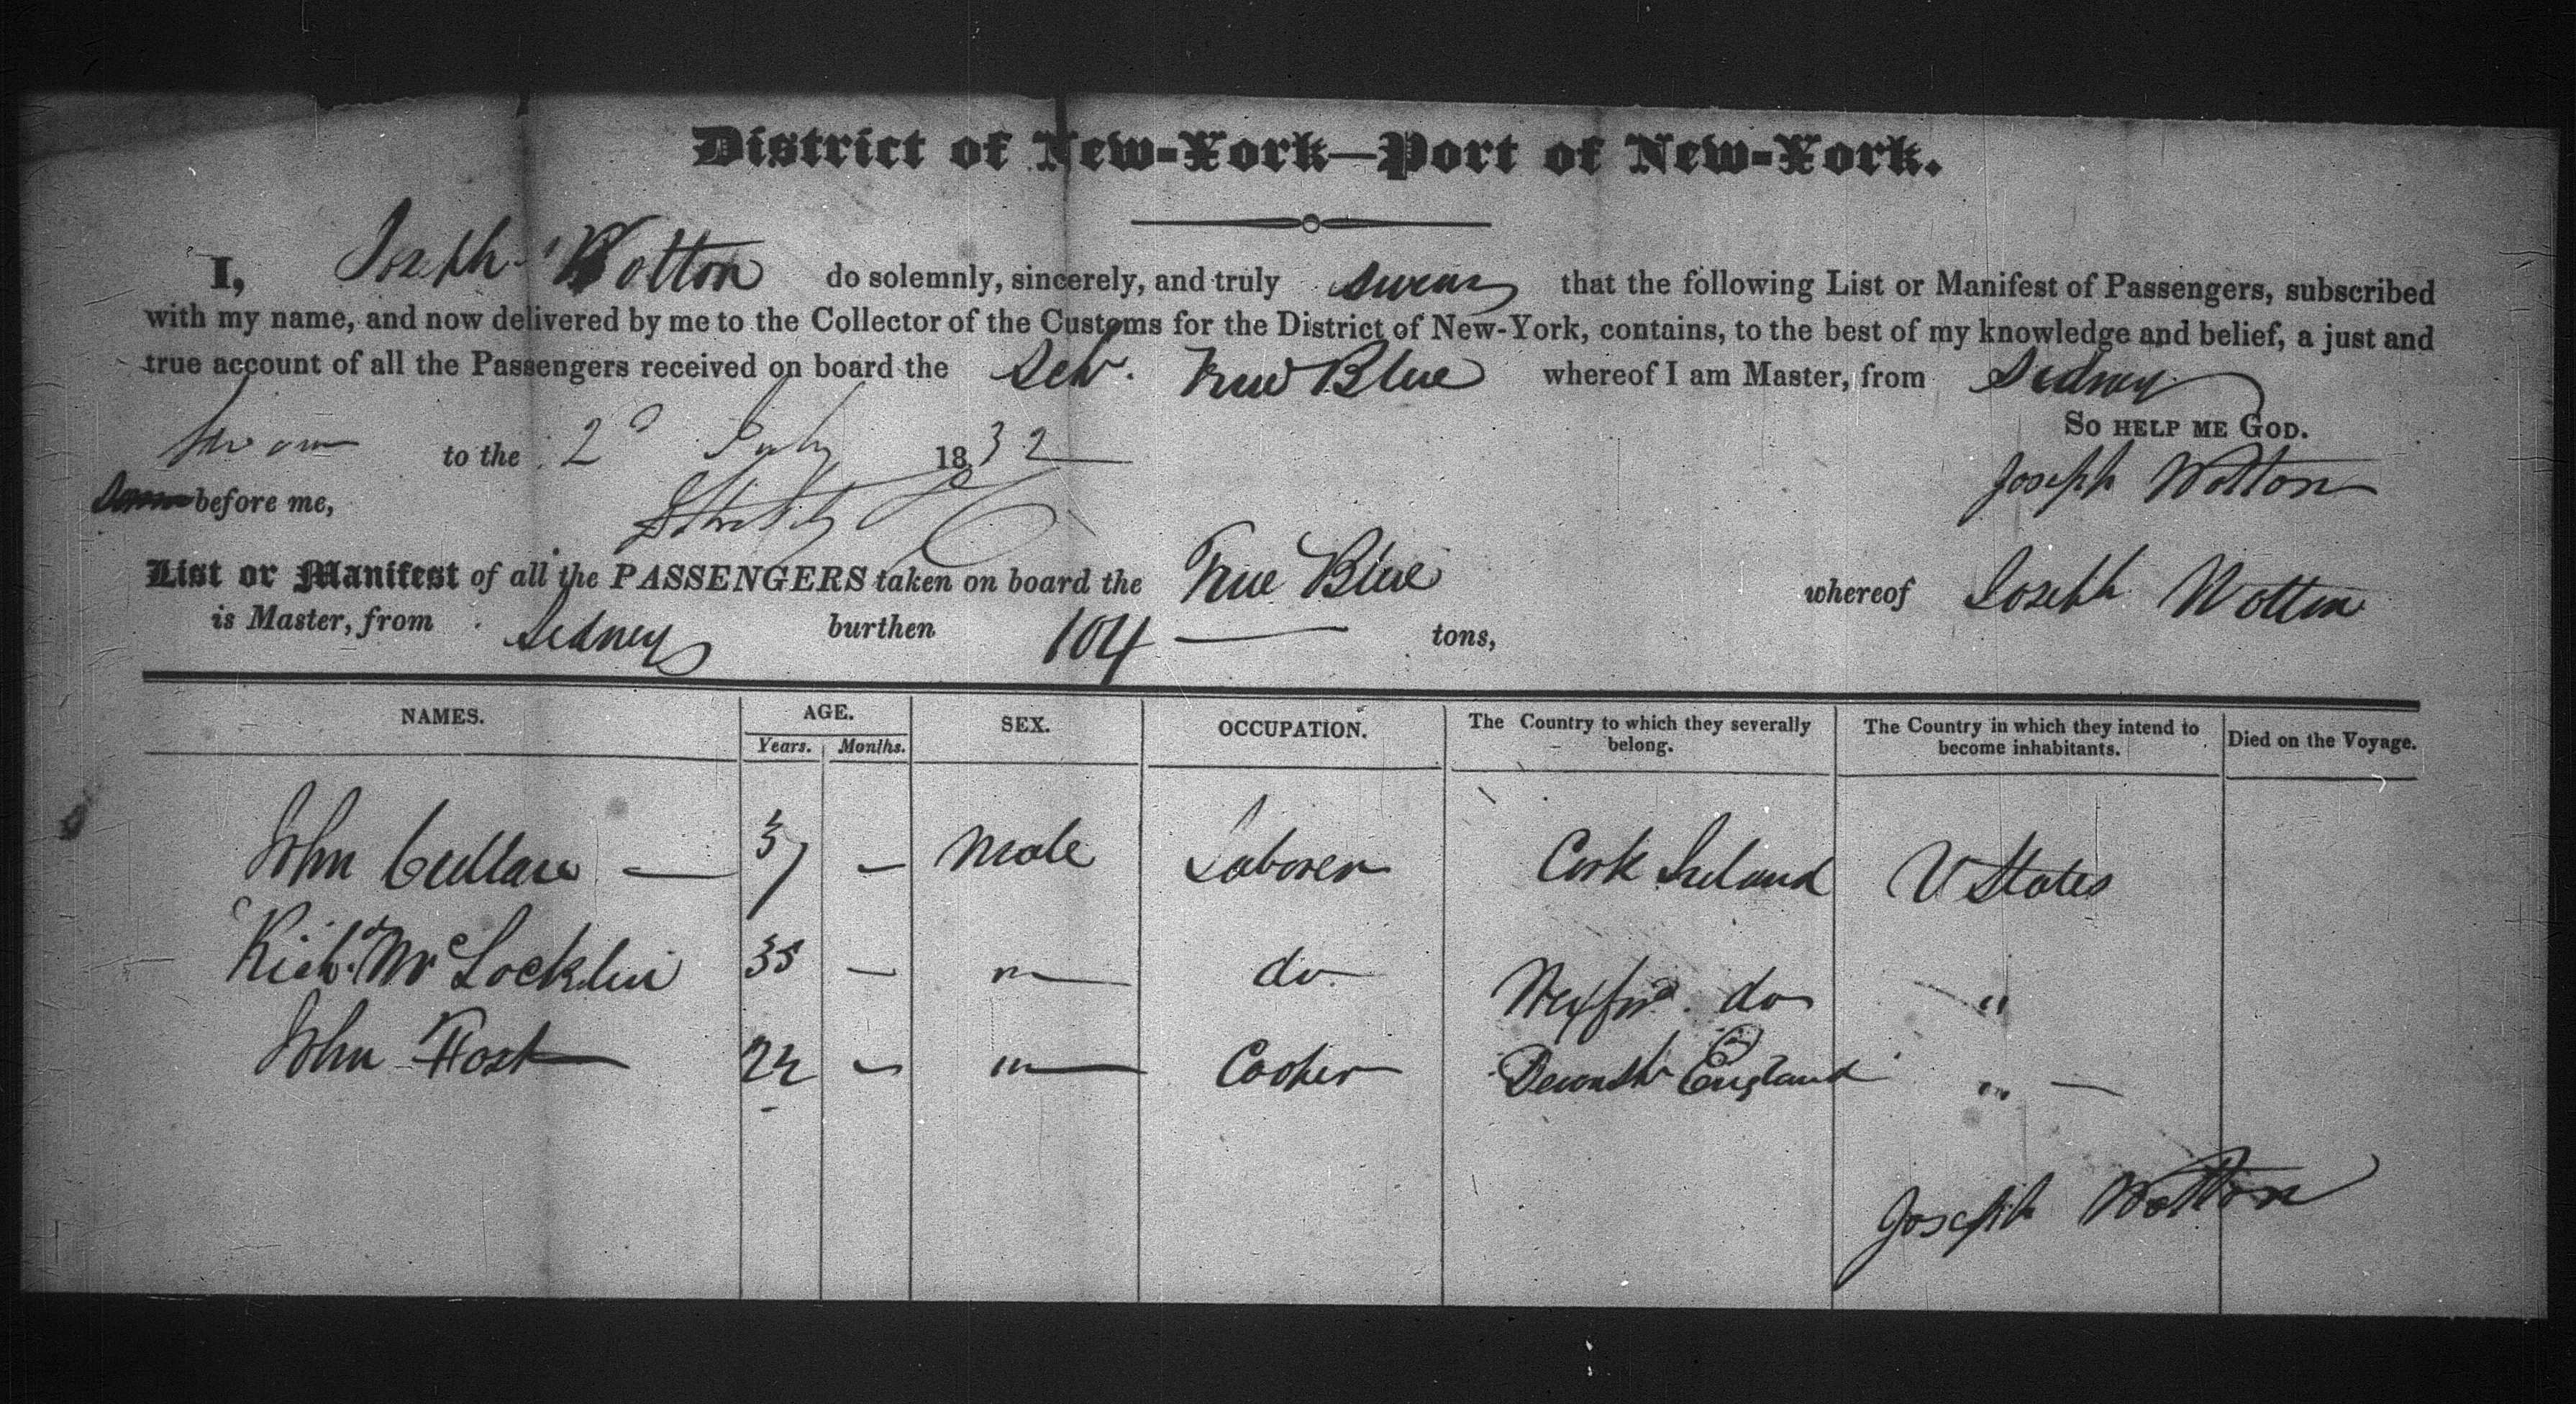 District of New-York—Port of New-York.
I, Joseph Wotton do solemnly, sincerely, and truly swear that the following List or Manifest of Passengers, subscribed
with my name, and now delivered by me to the Collector of the Customs for the District of New-York, contains, to the best of my knowledge and belief, a just and
true account of all the Passengers received on board the Sch. True Blue whereof I am Master, from Sidney
So HELP ME GOD.
Sworn to the 2d July 1832
Joseph Wotton
before me,
List or Manifest of all the PASSENGERS taken on board the True Blue whereof Joseph Wotton
is Master, from Sidney burthen 104 tons,
NAMES. AGE. SEX. OCCUPATION. The Country to which they severally belong. The Country in which they intend to become inhabitants. Died on the Voyage.
Years. Months.
John — 37 — Male Laborer Cork Ireland U States
Richd. McLocklin 35 — m do Wexford do "
John 22 — m Cooper Devonsh England " —
Joseph Wotton